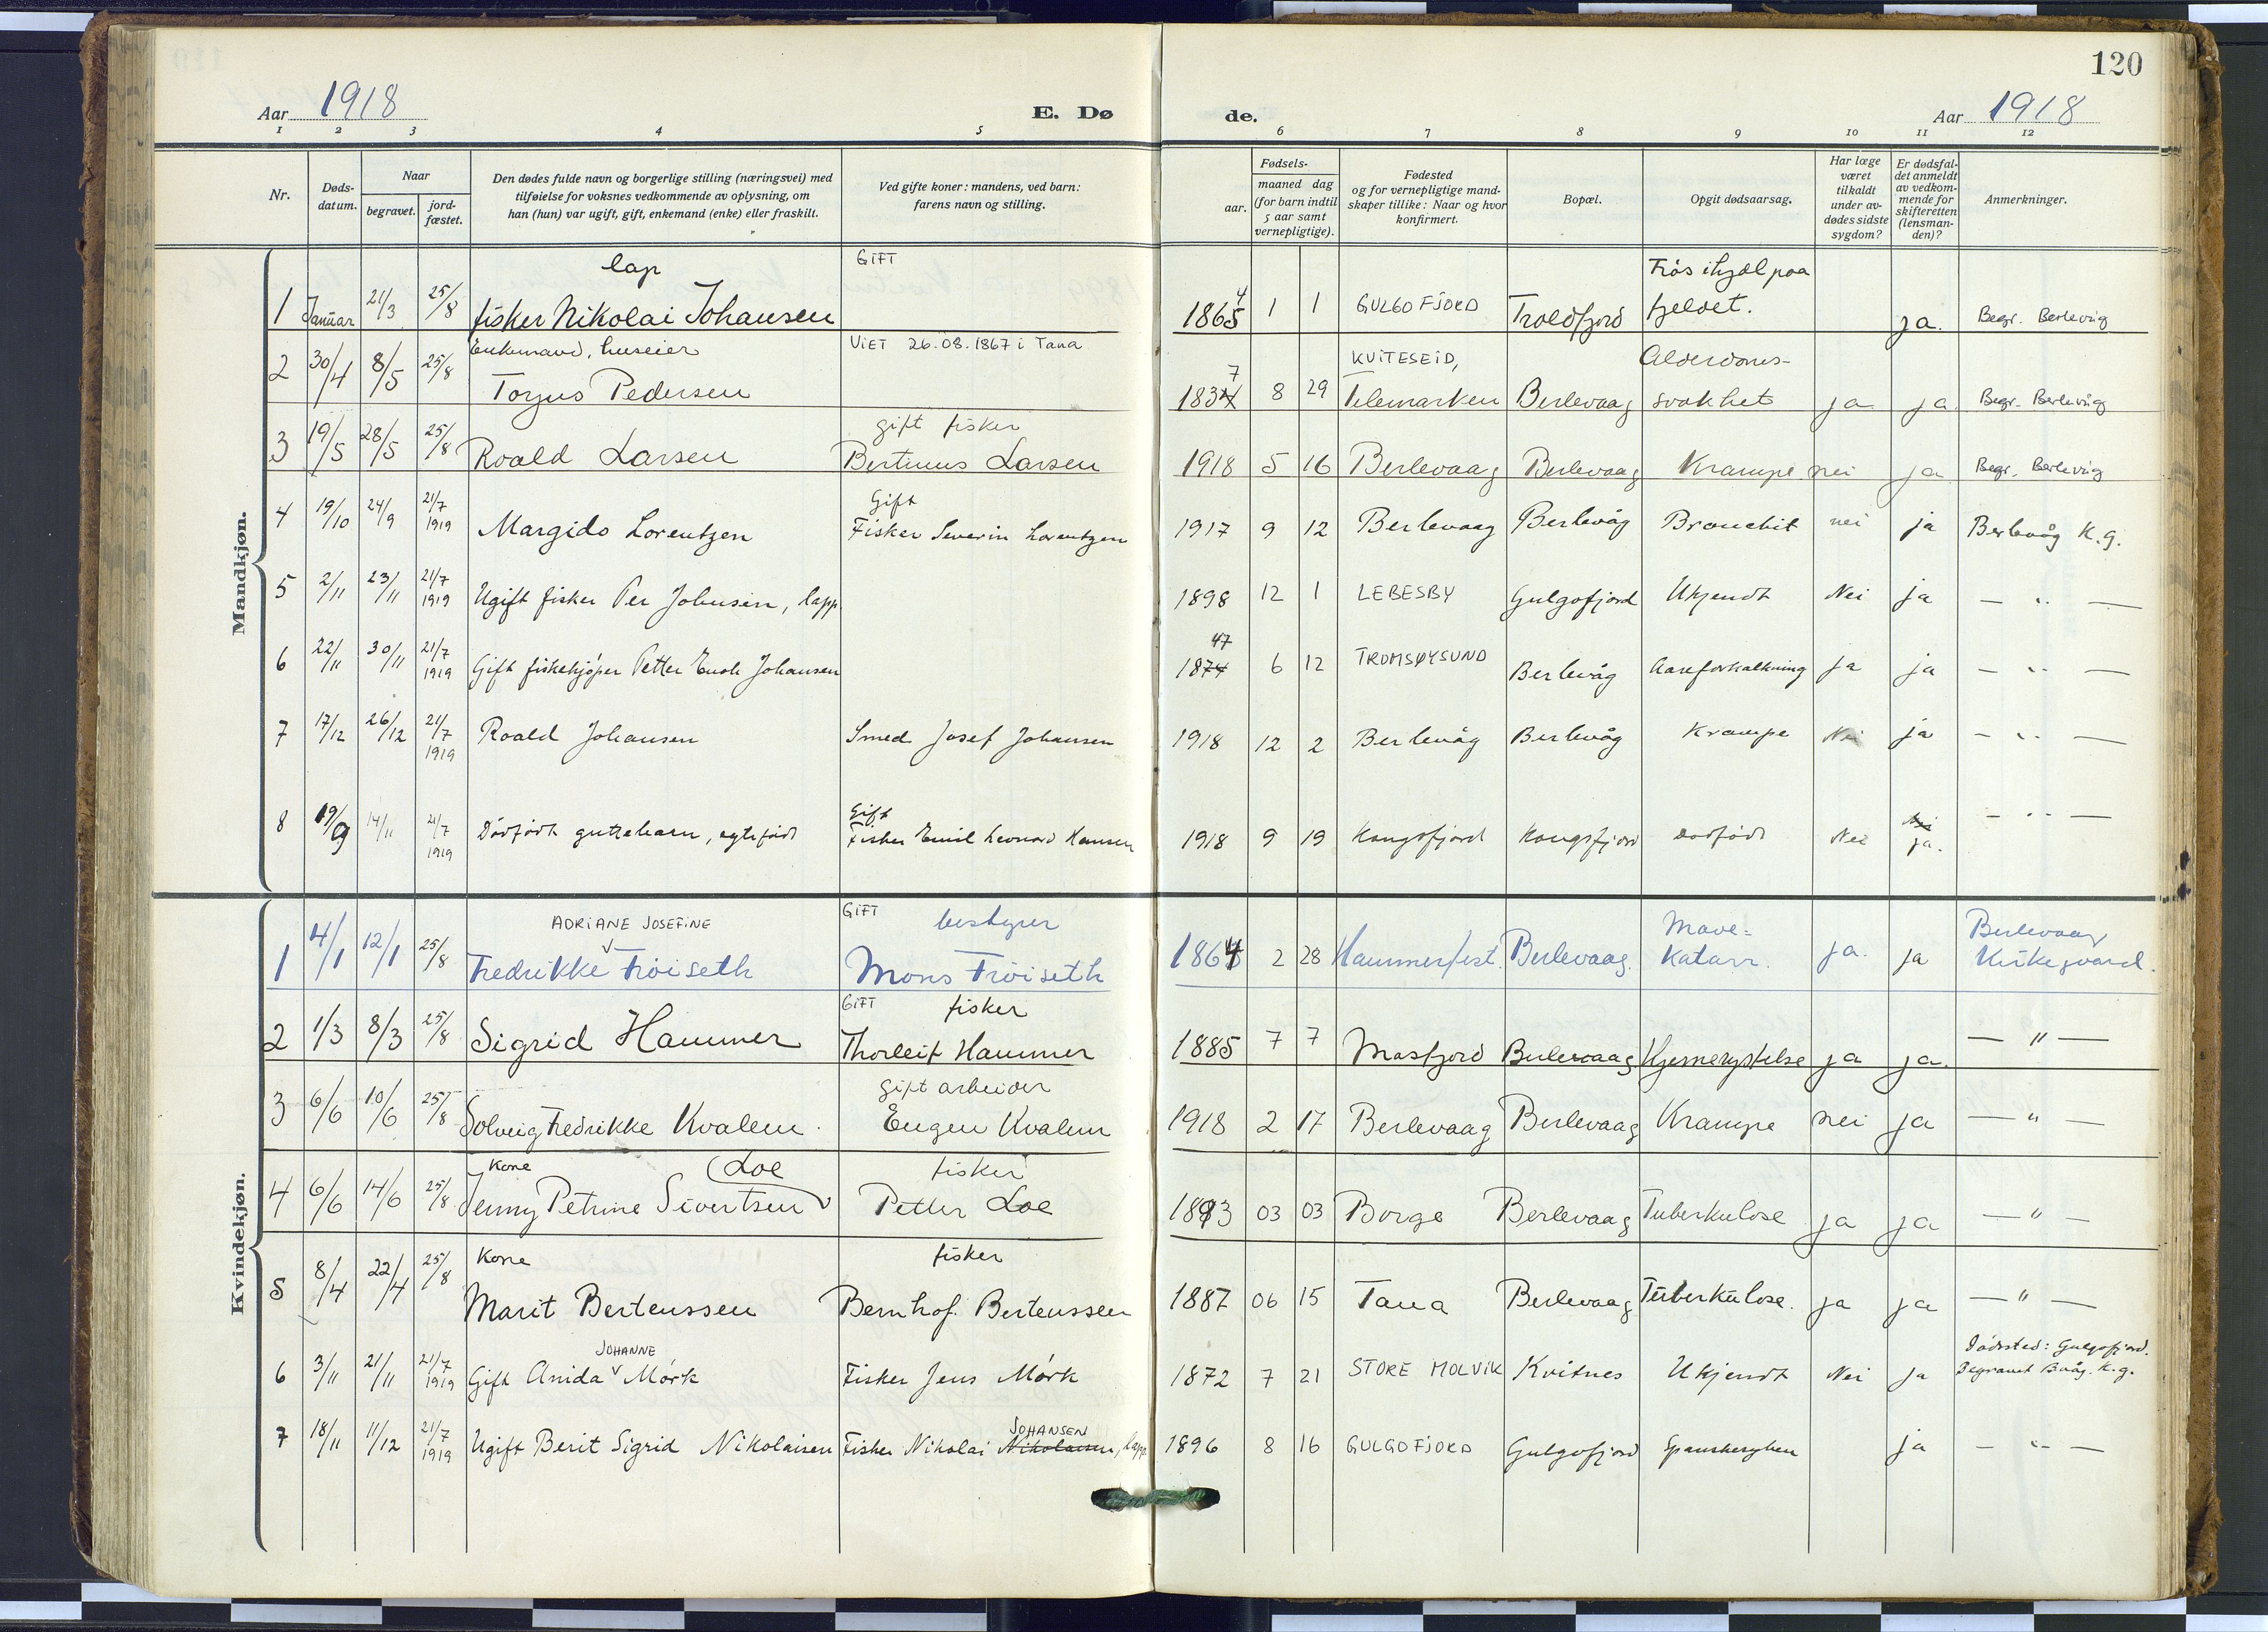 120
Aar 1918 E. Dø de. Aar 1918
1 2 3 4 5 6 7 8 9 10 11 12
Nr. Døds-datum. Naar begravet. jord-fæstet. Den dødes fulde navn og borgerlige stilling (næringsvei) med tilføielse for voksnes vedkommende av oplysning, om han (hun) var ugift, gift, enkemand (enke) eller fraskilt. Ved gifte koner: mandens, ved barn: farens navn og stilling. Fødsels- aar. maaned dag (for barn indtil 5 aar samt vernepligtige). Fødested og for vernepligtige mand-skaper tillike: Naar og hvor konfirmert. Bopæl. Opgit dødsaarsag. Har læge været tilkaldt under av-dødes sidste sygdom? Er dødsfal-det anmeldt av vedkom-mende for skifteretten (lensman-den)? Anmerkninger.
Mandkjøn.
lap GIFT Frøs ihjæl paa
1 Januar 21/3 25/8 fisker Nikolai Johansen 1865 4 1 1 GULGOFJORD Troldfjord fjeldet. ja. Begr. Berlevåg
Enkemand, huseier VIET 26.08.1867 i Tana KVITESEID, Alderdoms-
2 30/4 8/5 25/8 Torjus Pedersen 1834 7 8 29 Telemarken Berlevaag svakhet ja ja Begr. Berlevåg
gift fisker
3 19/5 28/5 25/8 Roald Larsen Bertinus Larsen 1918 5 16 Berlevaag Berlevaag Krampe nei ja Begr. Berlevåg
Gift
4 19/10 24/9 21/7 1919 Margido Lorentzen Fisker Severin Lorentzen 1917 9 12 Berlevaag Berlevåg Bronchit nei ja Berlevåg K.g.
5 2/11 23/11 21/7 1919 Ugift fisker Per Johnsen, lapp 1898 12 1 LEBESBY Gulgofjord Ukjendt Nei ja — " —
6 22/11 30/11 21/7 1919 Gift fiskekjøper Petter Enok Johansen 1874 47 6 12 TROMSØYSUND Berlevåg Aareforkalkning ja ja — " —
7 17/12 26/12 21/7 1919 Roald Johansen Smed Josef Johansen 1918 12 2 Berlevåg Berlevåg Krampe Nei ja — " —
Gift
8 19/9 14/11 21/7 1919 Dødfødt guttebarn, egtefødt Fisker Emil Leonard Hansen 1918 9 19 Kongsfjord Kongsfjord dødfødt Nei ja. — " —
Kvindekjøn.
ADRIANE JOSEFINE GIFT bestyrer Mave- Berlevaag
1 4/1 12/1 25/8 Fredrikke Frøiseth Mons Frøiseth 1864 2 28 Hammerfest. Berlevaag. Katarr. ja. ja Kirkegaard.
GIFT fisker
2 1/3 8/3 25/8 Sigrid Hammer Thorleif Hammer 1885 7 7 Masfjord Berlevaag Hjernerystelse ja ja. — " —
gift arbeider
3 6/6 10/6 25/8 Solveig Fredrikke Kvalem. Eugen Kvalem 1918 2 17 Berlevaag Berlevaag Krampe nei ja — " —
Kone Loe fisker
4 6/6 14/6 25/8 Jenny Petrine Sivertsen Petter Loe 1893 03 03 Borge Berlevaag Tuberkulose ja ja — " —
Kone fisker
5 8/4 22/4 25/8 Marit Bertenssen Bernhof. Bertenssen 1887 06 15 Tana Berlevaag Tuberkulose. ja ja — " —
JOHANNE Dødssted: Gulgofjord.
6 3/11 21/11 21/7 1919 Gift Anida Mørk Fisker Jens Mørk 1872 7 21 STORE MOLVIK Kvitnes Ukjendt Nei ja Begravet Bvåg. K.g.
JOHANSEN
7 18/11 11/12 21/7 1919 Ugift Berit Sigrid Nikolaisen Fisker Nikolai Nikolaisen, lapp 1896 8 16 GULGOFJORD Gulgofjord Spanskesyken ja — " —